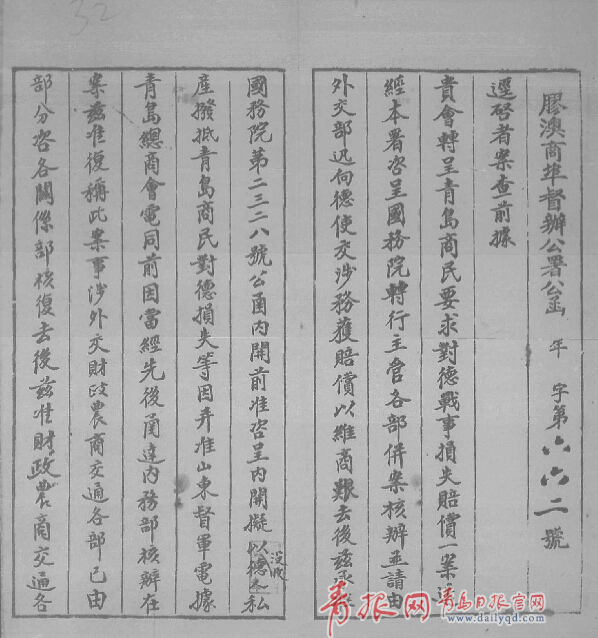 32
膠澳商埠督辦公署公函 年 字第六六二號
逕啓者案查前據
貴會轉呈青島商民要求對德戰事損失賠償一案
經本署咨呈國務院轉行主管各部併案核辦並請由
外交部迅向德使交涉務獲賠償以維商艱去後兹
國務院第二三二八號公函內開前准咨呈內開擬以
沒收
私
產撥抵青島商民對德損失等因并准山東督軍電據
青島總商會電同前因當經先後函達內務部核辦在
案兹准復稱此案事涉外交財政農商交通各部已由
部分咨各關係部核復去後兹准財政農商交通各
青报网 青岛日报官网
www.dailyqd.com